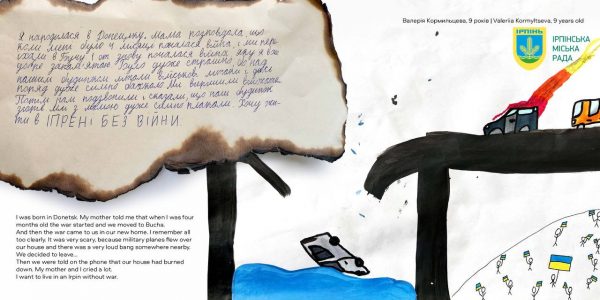 Я народилася в Донецьку. Мама розповідала, що
коли мені було 4 місяці почалася війна, і ми пере-
їхали в Бучу. І от знову почалася війна яку я вже
добре запам'ятаю. Було дуже страшно, бо над
нашим будинком літали військові літаки і десь
поряд дуже сильно бахкало. Ми вирішили виїжджати.
Потім нам подзвонили і сказали, що наш будинок
згорів. Ми з мамою дуже сильно плакали. Хочу жи-
ти в ІРПЕНІ БЕЗ ВІЙНИ.
Валерія Кормильцева, 9 років | Valeriia Kormyltseva, 9 years old
ІРПІНЬ
ІРПІНСЬКА
МІСЬКА
РАДА
I was born in Donetsk. My mother told me that when I was four
months old the war started and we moved to Bucha.
And then the war came to us in our new home. I remember all
too clearly. It was very scary, because military planes flew over
our house and there was a very loud bang somewhere nearby.
We decided to leave...
Then we were told on the phone that our house had burned
down. My mother and I cried a lot.
I want to live in an Irpin without war.